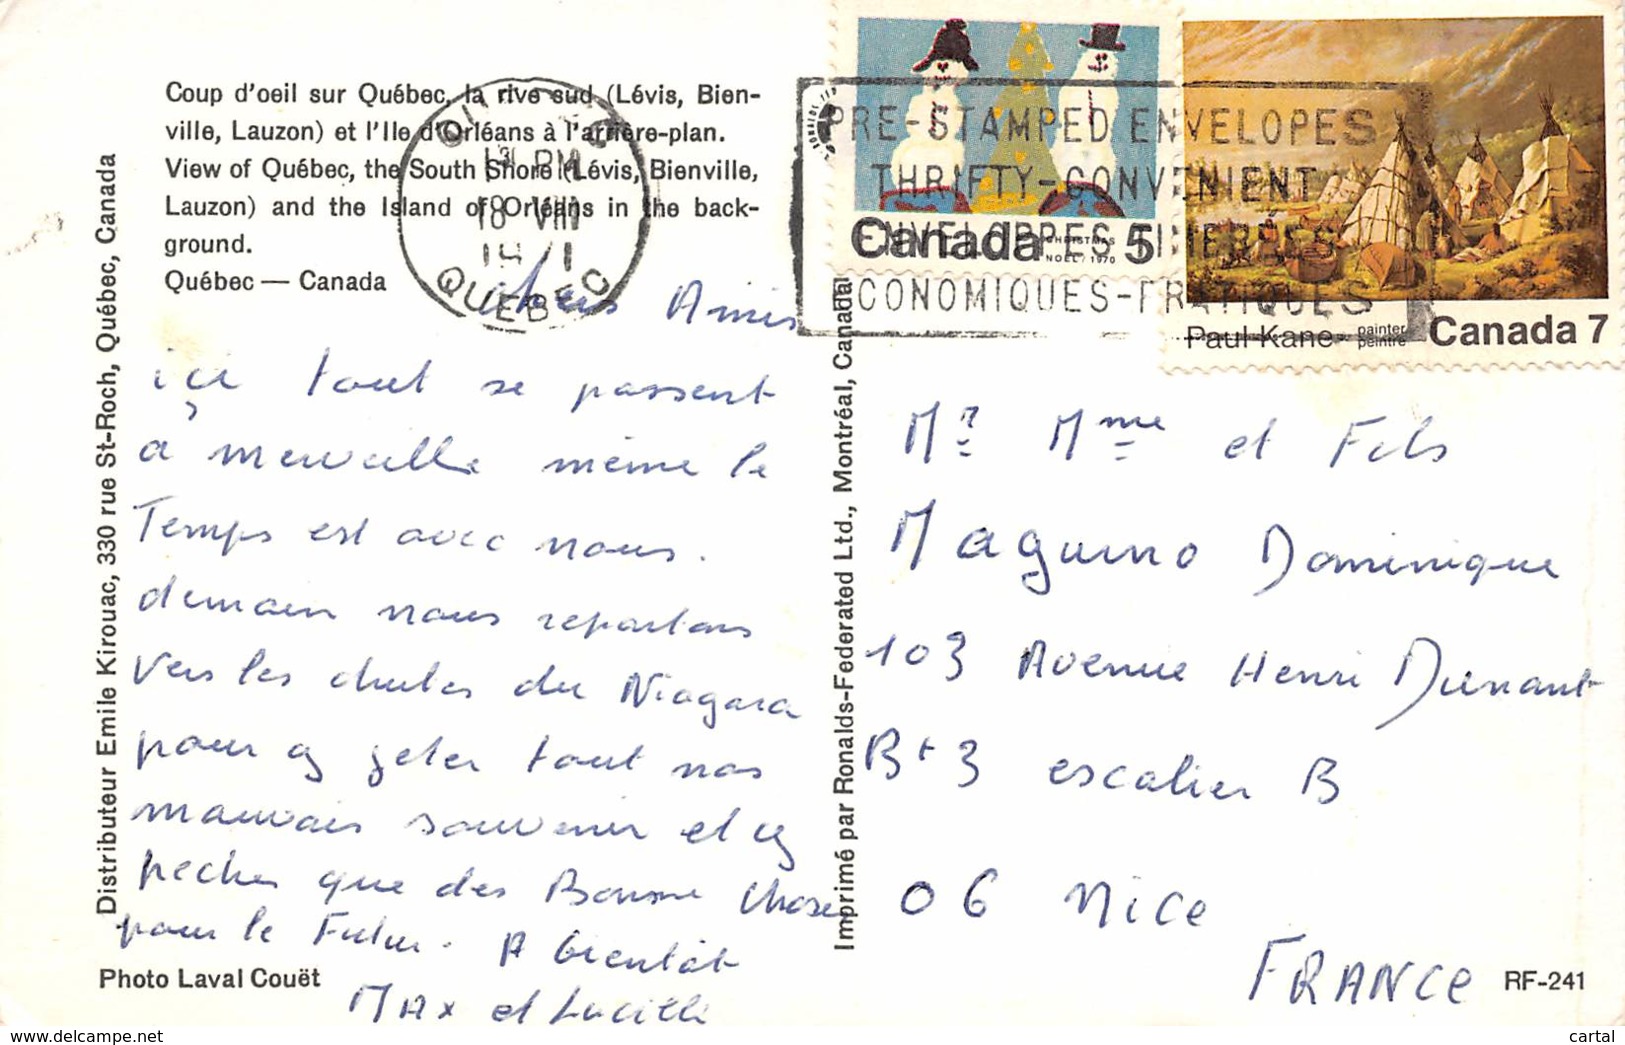 Coup d'oeil sur Québec, la rive sud (Lévis, Bien-
ville, Lauzon) et l'Ile d'Orléans à l'arrière-plan.
View of Québec, the South Shore (Lévis, Bienville,
Lauzon) and the Island of Orléans in the back-
ground.
Québec — Canada
Distributeur Emile Kirouac, 330 rue St-Roch, Québec, Canada
PM
18 VIII
QUEBEC
PRE-STAMPED ENVELOPES
THRIFTY-CONVENIENT
ENVELOPPES TIMBRÉES
ÉCONOMIQUES-PRATIQUES
Canada CHRISTMAS NOËL/1970 5
Paul Kane painter peintre Canada 7
Chers Amis
içi tout se passent
a merveille même le
Temps est avec nous.
demain nous repartons
vers les chutes du Niagara
pour y jeter tout nos
mauvais souvenir et y
pecher que des Bonne Chose
pour le Futur. A bientôt
MAX et Lucille
Imprimé par Ronalds-Federated Ltd., Montréal, Canada
Mr Mme et Fils
Maguino Dominique
103 Avenue Henri Dunant
Bt 3 escalier B
06 NICE
FRANCE
Photo Laval Couët
RF-241
cartal